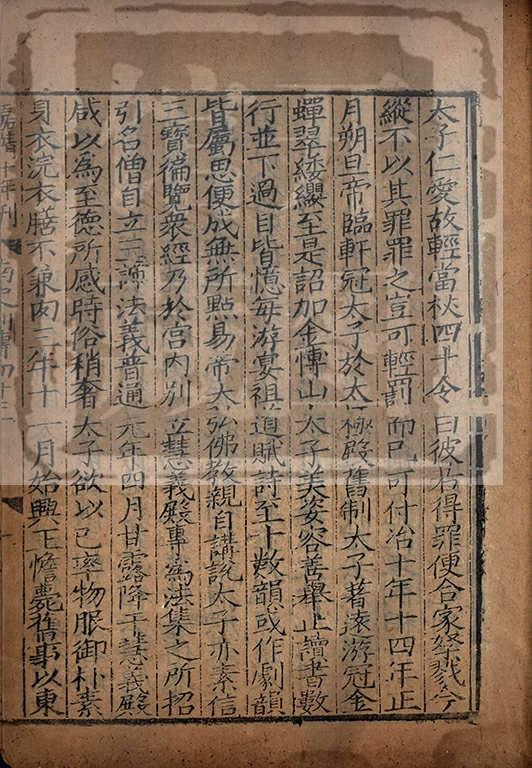 太子仁愛故輕當杖四十令曰彼若得罪便合家孥戮今
縱不以其罪罪之豈可輕罰而已可付冶十年十四年正
月朔旦帝臨軒冠太子於太極殿舊制太子著遠游冠金
蟬翠緌纓至是詔加金博山太子美姿容善舉止讀書數
行並下過目皆憶每游宴祖道賦詩至十數韻或作劇韻
皆屬思便成無所點易帝大弘佛教親自講說太子亦素信
三寶徧覽衆經乃於宮內別立慧義殿專為法集之所招
引名僧自立三諦法義普通元年四月甘露降于慧義殿
咸以為至德所感時俗稍奢太子欲以己率物服御朴素
身衣浣衣膳不兼肉三年十一月始興王憺薨舊事以東
嘉靖十年刊 南史列傳四十三